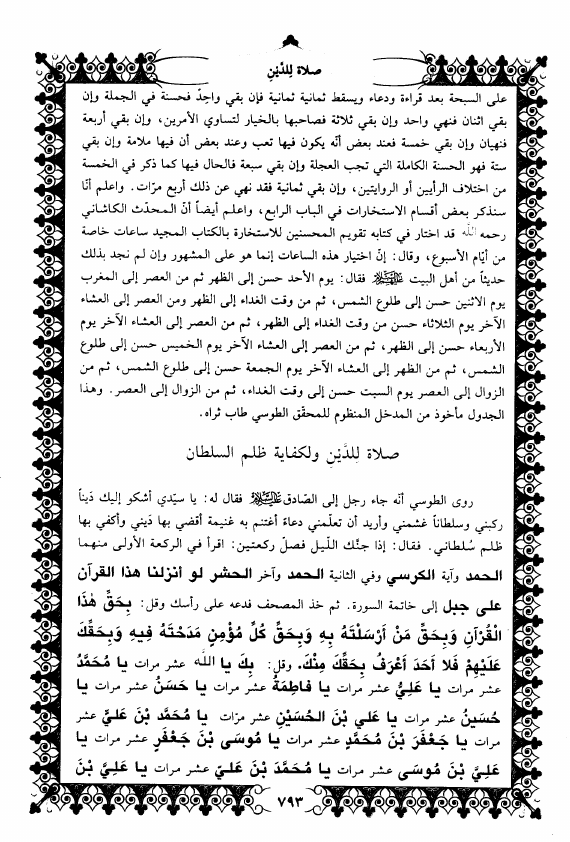 صلاة لِلدَّيْنِ
على السبحة بعد قراءة ودعاء ويسقط ثمانية ثمانية فإن بقي واحِدٌ فحسنة في الجملة وإن
بقي اثنان فنهي واحد وإن بقي ثلاثة فصاحبها بالخيار لتساوي الأمرين، وإن بقي أربعة
فنهيان وإن بقي خمسة فعند بعض أنّه يكون فيها تعب وعند بعض أن فيها ملامة وإن بقي
ستة فهو الحسنة الكاملة التي تجب العجلة وإن بقي سبعة فالحال فيها كما ذكر في الخمسة
من اختلاف الرأيين أو الروايتين، وإن بقي ثمانية فقد نهي عن ذلك أربع مرّات. واعلم أنّا
سنذكر بعض أقسام الاستخارات في الباب الرابع، واعلم أيضاً أنّ المحدّث الكاشاني
رحمه الله قد اختار في كتابه تقويم المحسنين للاستخارة بالكتاب المجيد ساعات خاصة
من أيّام الأسبوع، وقال: إنّ اختيار هذه الساعات إنما هو على المشهور وإن لم نجد بذلك
حديثاً من أهل البيت عليهم السلام فقال: يوم الأحد حسن إلى الظهر ثم من العصر إلى المغرب
يوم الاثنين حسن إلى طلوع الشمس، ثم من وقت الغداء إلى الظهر ومن العصر إلى العشاء
الآخر يوم الثلاثاء حسن من وقت الغداء إلى الظهر، ثم من العصر إلى العشاء الآخر يوم
الأربعاء حسن إلى الظهر، ثم من العصر إلى العشاء الآخر يوم الخميس حسن إلى طلوع
الشمس، ثم من الظهر إلى العشاء الآخر يوم الجمعة حسن إلى طلوع الشمس، ثم من
الزوال إلى العصر يوم السبت حسن إلى وقت الغداء، ثم من الزوال إلى العصر. وهذا
الجدول مأخوذ من المدخل المنظوم للمحقّق الطوسي طاب ثراه.
صلاة لِلدَّيْنِ ولكفاية ظلم السلطان
روى الطوسي أنّه جاء رجل إلى الصّادق عليه السلام فقال له: يا سيّدي أشكو إليك دَيناً
ركبني وسلطاناً غشمني وأريد أن تعلّمني دعاءً أغتنم به غنيمة أقضي بها دَيني وأكفي بها
ظلم سُلطاني. فقال: إذا جنّك اللّيل فصلّ ركعتين: اقرأ في الركعة الأولى منهما
الحمد وآية الكرسي وفي الثانية الحمد وآخر الحشر لو أنزلنا هذا القرآن
على جبل إلى خاتمة السورة. ثم خذ المصحف فدعه على رأسك وقل: بِحَقِّ هٰذَا
الْقُرْآنِ وَبِحَقِّ مَنْ أَرْسَلْتَهُ بِهِ وَبِحَقِّ كُلِّ مُؤْمِنٍ مَدَحْتَهُ فِيهِ وَبِحَقِّكَ
عَلَيْهِمْ فَلا أَحَدَ أَعْرَفُ بِحَقِّكَ مِنْكَ. وقل: بِكَ يا الله عشر مرات يا مُحَمَّدُ
عشر مرات يا عَلِيُّ عشر مرات يا فاطِمَةُ عشر مرات يا حَسَنُ عشر مرات يا
حُسَينُ عشر مرات يا عَلي بْنَ الحُسَيْنِ عشر مرّات يا مُحَمَّد بْنَ عَليٍّ عشر
مرات يا جَعْفَرَ بْنَ مُحَمَّدٍ عشر مرات يا مُوسَى بْنَ جَعْفَرٍ عشر مرات يا
عَلِيَّ بْنَ مُوسَى عشر مرات يا مُحَمَّدَ بْنَ عَليٍّ عشر مرات يا عَلِيَّ بْنَ
٧٩٣